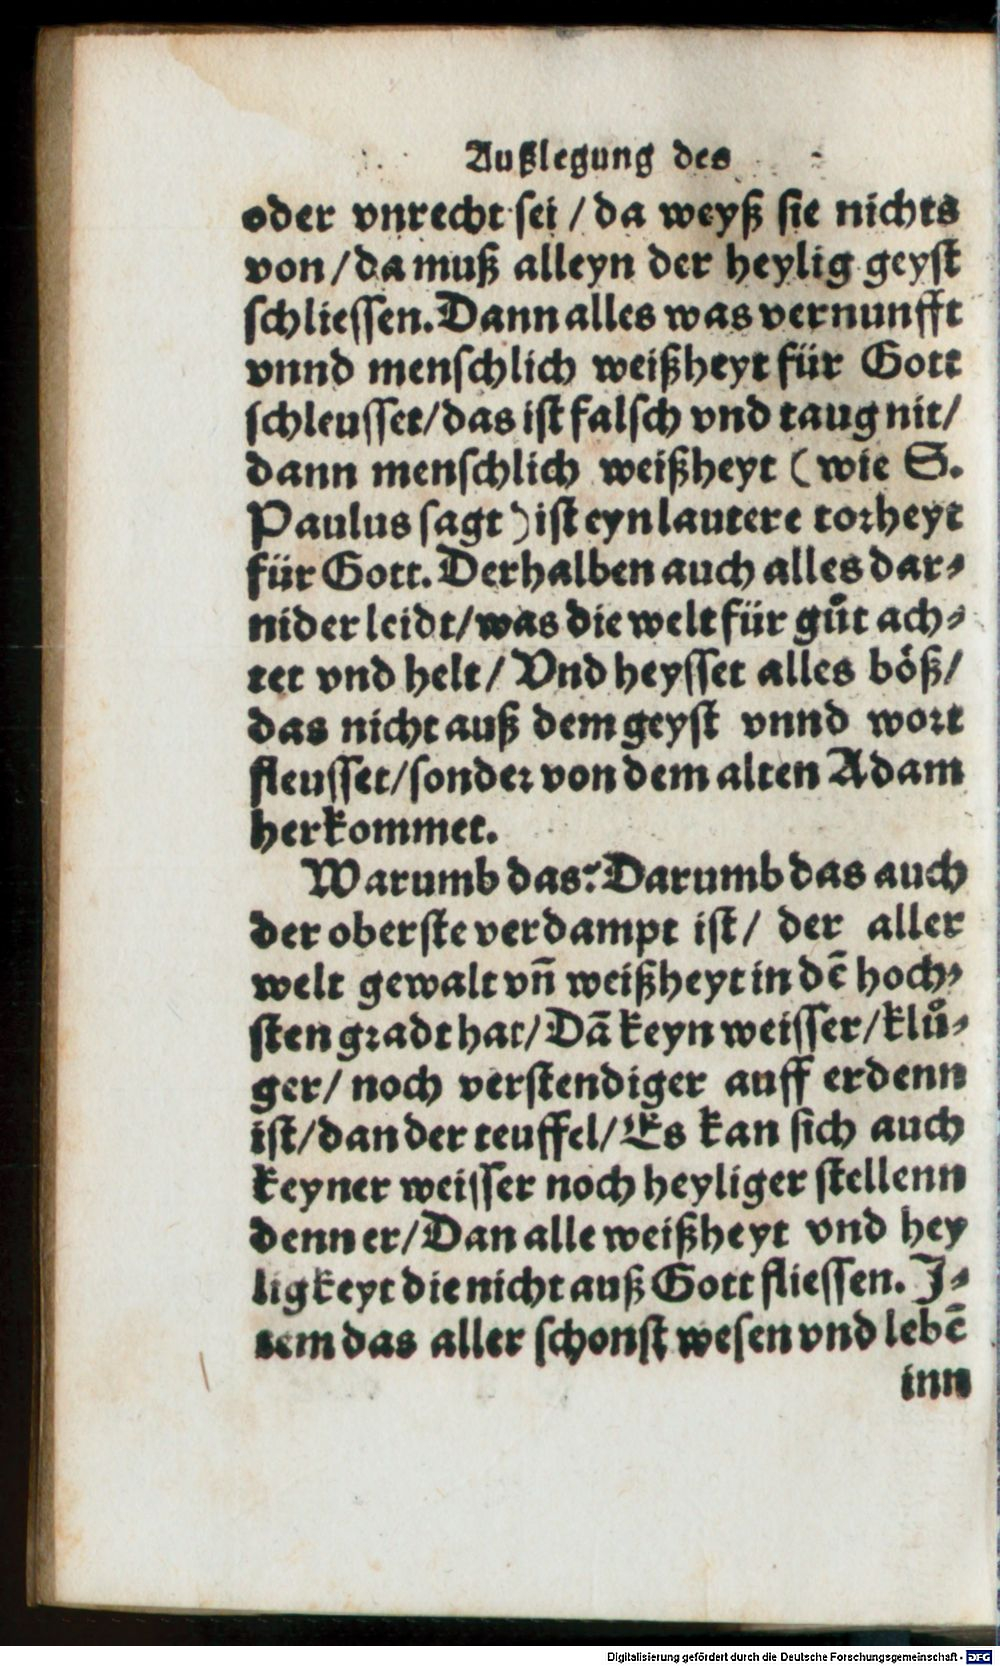 Außlegung des
oder vnrecht sei / da weyß sie nichts
von / da muß alleyn der heylig geyst
schliessen. Dann alles was vernunfft
vnnd menschlich weißheyt für Gott
schleusset / das ist falsch vnd taug nit /
dann menschlich weißheyt ( wie S.
Paulus sagt ) ist eyn lautere torheyt
für Gott. Derhalben auch alles dar⸗
nider leidt / was die welt für gůt ach⸗
tet vnd helt / Vnd heysset alles böß /
das nicht auß dem geyst vnnd wort
fleusset / sonder von dem alten Adam
herkommet.
Warumb das? Darumb das auch
der oberste verdampt ist / der aller
welt gewalt vñ weißheyt in dē hoch⸗
sten gradt hat / Dā keyn weisser / klů⸗
ger / noch verstendiger auff erdenn
ist / dan der teuffel / Es kan sich auch
keyner weisser noch heyliger stellenn
denn er / Dan alle weißheyt vnd hey
ligkeyt die nicht auß Gott fliessen. J⸗
tem das aller schonst wesen vnd lebē
inn
Digitalisierung gefördert durch die Deutsche Forschungsgemeinschaft - DFG